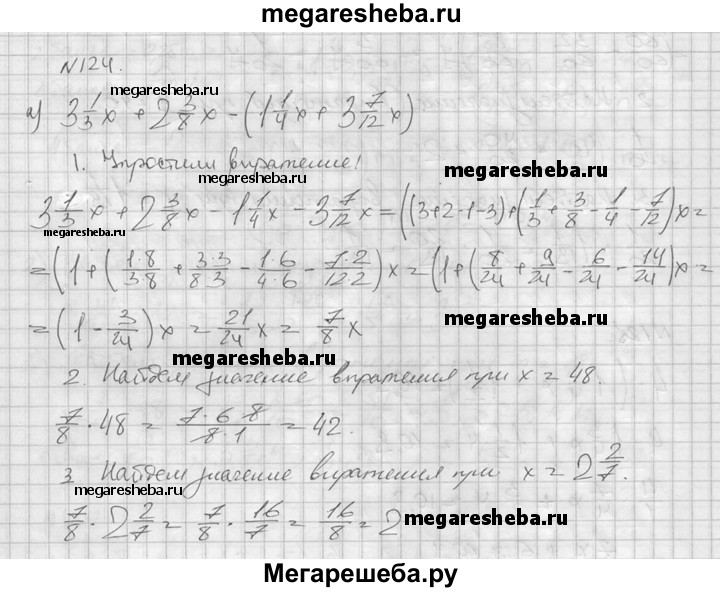 megaresheba.ru
N124.
megaresheba.ru
а) 3 1/3 x + 2 3/8 x - (1 1/4 x + 3 7/12 x)
1. Упростили выражение!
megaresheba.ru
megaresheba.ru
3 1/3 x + 2 3/8 x - 1 1/4 x - 3 7/12 x = ((3+2-1-3)+(1/3 + 3/8 - 1/4 - 7/12) x =
megaresheba.ru
= (1 + (1·8/3·8 + 3·3/8·3 - 1·6/4·6 - 7·2/12·2) x = (1 + (8/24 + 9/24 - 6/24 - 14/24) x =
= (1 - 3/24) x = 21/24 x = 7/8 x
megaresheba.ru
megaresheba.ru
2. Найдем значение выражения при x = 48.
7/8 · 48 = 7·6·8/8·1 = 42.
3. Найдем значение выражения при x = 2 2/7.
megaresheba.ru
7/8 · 2 2/7 = 7/8 · 16/7 = 16/8 = 2
megaresheba.ru
Мегарешеба.ру